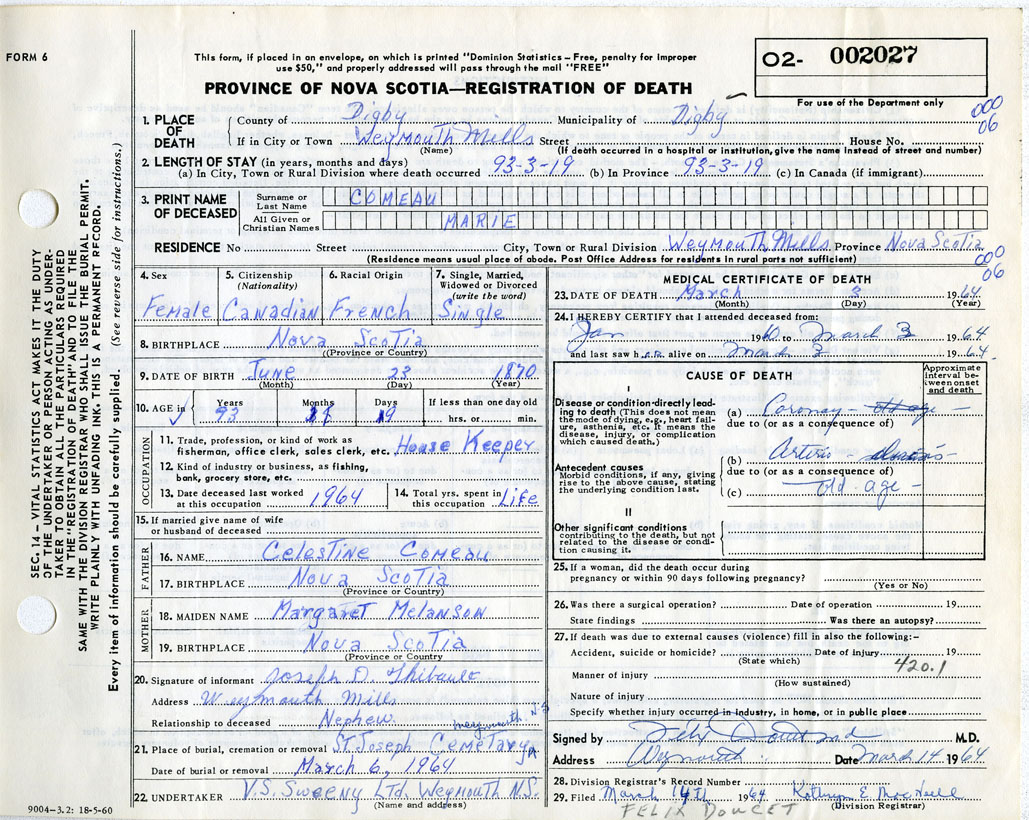 FORM 6
This form, if placed in an envelope, on which is printed "Dominion Statistics – Free, penalty for Improper
use $50," and properly addressed will pass through the mail "FREE"
PROVINCE OF NOVA SCOTIA—REGISTRATION OF DEATH
02- 002027
For use of the Department only
000
06
1. PLACE OF DEATH
County of Digby Municipality of Digby
If in City or Town Weymouth Mills Street House No.
(Name) (If death occurred in a hospital or institution, give the name instead of street and number)
2. LENGTH OF STAY (in years, months and days)
(a) In City, Town or Rural Division where death occurred 93-3-19 (b) In Province 93-3-19 (c) In Canada (if immigrant)
3. PRINT NAME OF DECEASED
Surname or Last Name COMEAU
All Given or Christian Names MARIE
RESIDENCE No Street City, Town or Rural Division Weymouth Mills Province Nova Scotia
(Residence means usual place of abode. Post Office Address for residents in rural parts not sufficient)
000
06
4. Sex
Female
5. Citizenship
(Nationality)
Canadian
6. Racial Origin
French
7. Single, Married, Widowed or Divorced
(write the word)
Single
8. BIRTHPLACE Nova Scotia
(Province or Country)
9. DATE OF BIRTH June 23 1870
(Month) (Day) (Year)
10. AGE in
Years Months Days If less than one day old
93 19 hrs. or min.
OCCUPATION
11. Trade, profession, or kind of work as
fisherman, office clerk, sales clerk, etc. House Keeper
12. Kind of industry or business, as fishing,
bank, grocery store, etc.
13. Date deceased last worked
at this occupation 1964
14. Total yrs. spent in
this occupation Life
15. If married give name of wife
or husband of deceased
FATHER
16. NAME Celestine Comeau
17. BIRTHPLACE Nova Scotia
(Province or Country)
MOTHER
18. MAIDEN NAME Margaret Melanson
19. BIRTHPLACE Nova Scotia
(Province or Country
20. Signature of informant Joseph D. Thibault
Address Weymouth Mills
Relationship to deceased Nephew
Weymouth NS
21. Place of burial, cremation or removal St. Joseph Cemetary
Date of burial or removal March 6, 1964
22. UNDERTAKER V.S. Sweeny Ltd. Weymouth N.S.
(Name and address)
MEDICAL CERTIFICATE OF DEATH
23. DATE OF DEATH March 3 1964
(Month) (Day) (Year)
24. I HEREBY CERTIFY that I attended deceased from:
Jan 1960 to March 3 1964
and last saw her alive on March 3 1964
CAUSE OF DEATH
Approximate interval between onset and death
I
Disease or condition-directly leading to death (This does not mean the mode of dying, e.g., heart failure, asthenia, etc. It means the disease, injury, or complication which caused death.)
(a) Coronary
due to (or as a consequence of)
Antecedent causes
Morbid conditions, if any, giving rise to the above cause, stating the underlying condition last.
(b) Arterio
due to (or as a consequence of)
(c) Old age
II
Other significant conditions
contributing to the death, but not related to the disease or condition causing it.
25. If a woman, did the death occur during
pregnancy or within 90 days following pregnancy?
(Yes or No)
26. Was there a surgical operation? Date of operation 19
State findings Was there an autopsy?
27. If death was due to external causes (violence) fill in also the following:-
Accident, suicide or homicide? Date of injury 19
(State which)
420.1
Manner of injury
(How sustained)
Nature of injury
Specify whether injury occurred in industry, in home, or in public place
Signed by M.D.
Address Weymouth Date March 14 1964
28. Division Registrar's Record Number
29. Filed March 14th 1964 Kathryn E. MacNeill
(Division Registrar)
FELIX DOUCET
SEC. 14 – VITAL STATISTICS ACT MAKES IT THE DUTY
OF THE UNDERTAKER OR PERSON ACTING AS UNDER-
TAKER TO OBTAIN ALL THE PARTICULARS REQUIRED
IN THE "REGISTRATION OF DEATH" AND TO FILE THE
SAME WITH THE DIVISION REGISTRAR WHO SHALL ISSUE THE BURIAL PERMIT.
WRITE PLAINLY WITH UNFADING INK. THIS IS A PERMANENT RECORD.
Every item of information should be carefully supplied. (See reverse side for instructions.)
9004–3.2: 18-5-60